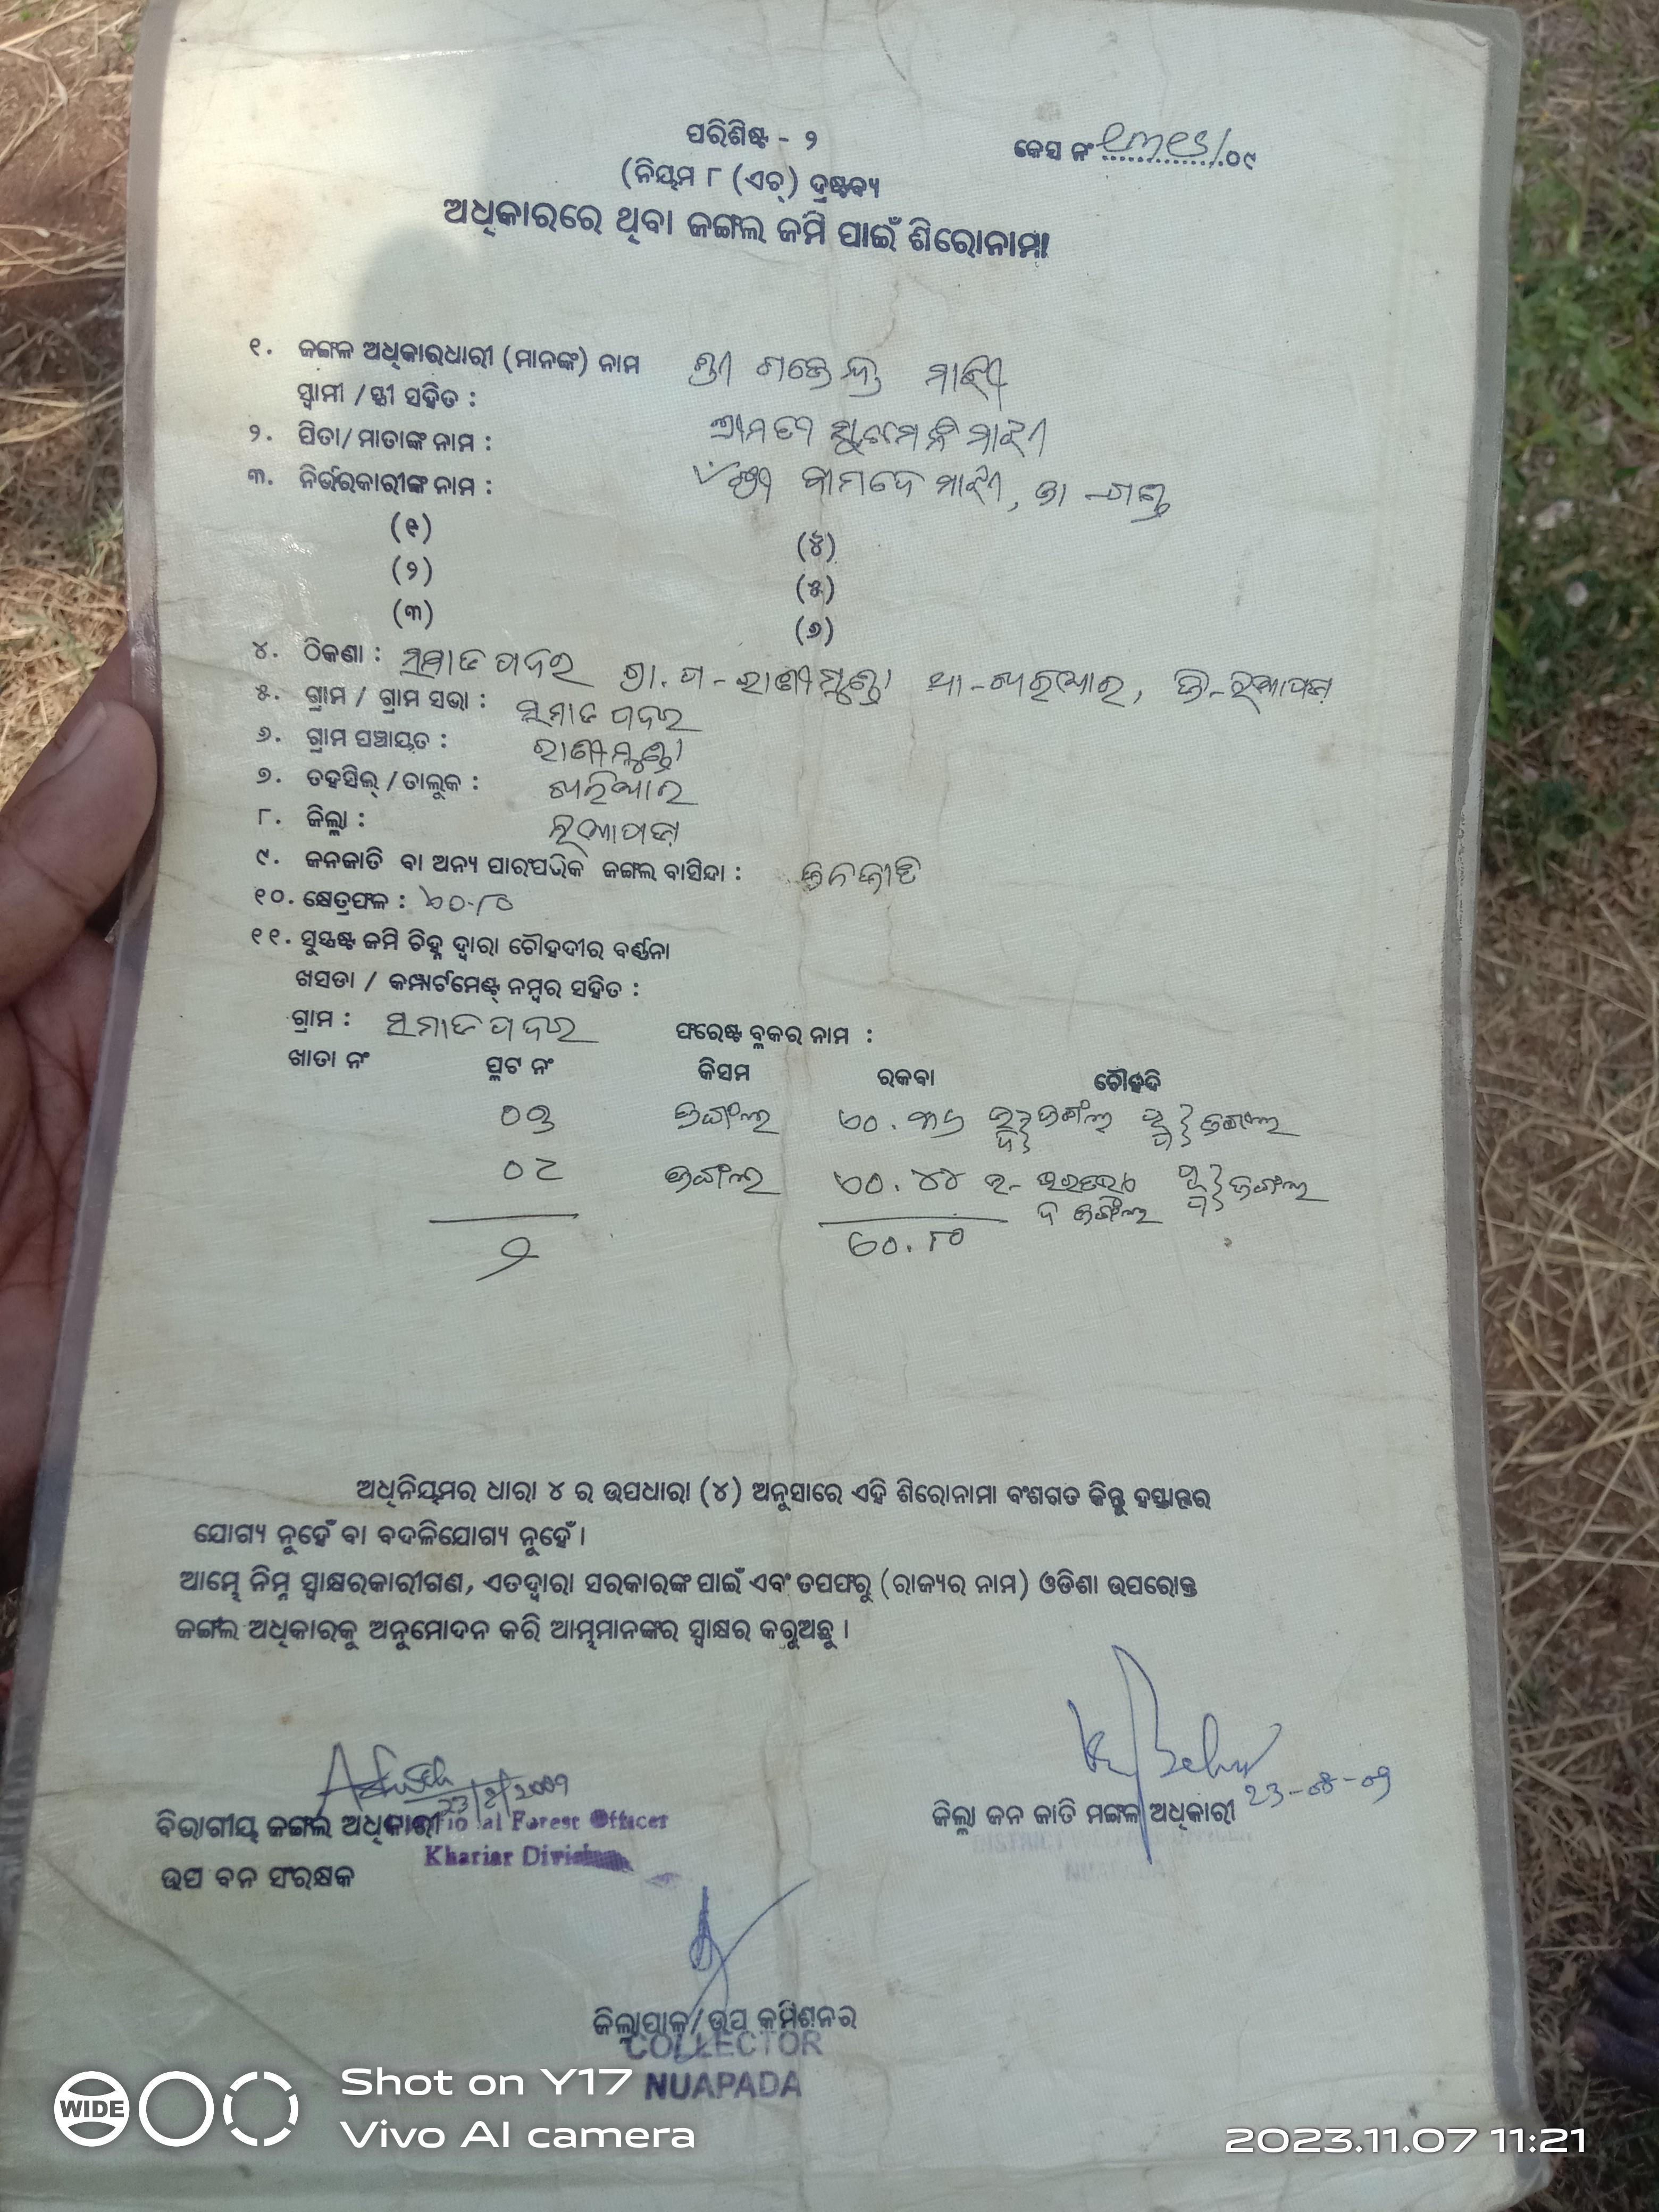 ପରିଶିଷ୍ଟ - ୨
କେସ ନଂ ............/୦୯
(ନିୟମ ୮ (ଏଚ୍) ଦ୍ରଷ୍ଟବ୍ୟ
ଅଧିକାରରେ ଥିବା ଜଙ୍ଗଲ ଜମି ପାଇଁ ଶିରୋନାମା
୧. ଜଙ୍ଗଳ ଅଧିକାରଧାରୀ (ମାନଙ୍କ) ନାମ ଶ୍ରୀ ଗଜେନ୍ଦ୍ର ମାଝୀ
ସ୍ୱାମୀ / ସ୍ତ୍ରୀ ସହିତ : ଶ୍ରୀମତୀ ମାଝୀ
୨. ପିତା/ ମାତାଙ୍କ ନାମ : ମାଝୀ, ଜା - ଗଣ୍ଡ
୩. ନିର୍ଭରକାରୀଙ୍କ ନାମ :
(୧) (୪)
(୨) (୫)
(୩) (୬)
୪. ଠିକଣା : ଗ୍ରା. ପ - ରାଣୀମୁଣ୍ଡା ଥା - ଖରିଆର, ଜି - ନୂଆପଡ଼ା
୫. ଗ୍ରାମ / ଗ୍ରାମ ସଭା :
୬. ଗ୍ରାମ ପଞ୍ଚାୟତ : ରାଣୀମୁଣ୍ଡା
୭. ତହସିଲ୍ / ତାଲୁକ : ଖରିଆର
୮. ଜିଲ୍ଲା : ନୂଆପଡ଼ା
୯. ଜନଜାତି ବା ଅନ୍ୟ ପାରଂପରିକ ଜଙ୍ଗଲ ବାସିନ୍ଦା : ଜନଜାତି
୧୦. କ୍ଷେତ୍ରଫଳ : ୦.୮୦
୧୧. ସୁସ୍ପଷ୍ଟ ଜମି ଚିହ୍ନ ଦ୍ୱାରା ଚୌହଦୀର ବର୍ଣ୍ଣନା
ଖସଡା / କମ୍ପାର୍ଟମେଣ୍ଟ୍ ନମ୍ବର ସହିତ :
ଗ୍ରାମ : ଫରେଷ୍ଟ ବ୍ଳକର ନାମ :
ଖାତା ନଂ ପ୍ଳଟ ନଂ କିସମ ରକବା ଚୌହଦି
ଜଙ୍ଗଲ ଏ୦.୩୬ ଜଙ୍ଗଲ ଜଙ୍ଗଲ
ଜଙ୍ଗଲ ଏ୦.୪୪ ଜଙ୍ଗଲ
ଦ ଜଙ୍ଗଲ
୨ ଏ୦.୮୦
ଅଧିନିୟମର ଧାରା ୪ ର ଉପଧାରା (୪) ଅନୁସାରେ ଏହି ଶିରୋନାମା ବଂଶଗତ କିନ୍ତୁ ହସ୍ତାନ୍ତର
ଯୋଗ୍ୟ ନୁହେଁ ବା ବଦଳିଯୋଗ୍ୟ ନୁହେଁ।
ଆମ୍ଭେ ନିମ୍ନ ସ୍ୱାକ୍ଷରକାରୀଗଣ, ଏତଦ୍ୱାରା ସରକାରଙ୍କ ପାଇଁ ଏବଂ ତପଫରୁ (ରାଜ୍ୟର ନାମ) ଓଡିଶା ଉପରୋକ୍ତ
ଜଙ୍ଗଲ ଅଧିକାରକୁ ଅନୁମୋଦନ କରି ଆମ୍ଭମାନଙ୍କର ସ୍ୱାକ୍ଷର କରୁଅଛୁ।
23/8/2009
23-08-09
ବିଭାଗୀୟ ଜଙ୍ଗଲ ଅଧିକାରୀ Forest Officer
ଜିଲ୍ଲା ଜନ ଜାତି ମଙ୍ଗଳ ଅଧିକାରୀ
Khariar Division
DISTRICT WELFARE OFFICER
NUAPADA
ଉପ ବନ ସଂରକ୍ଷକ
ଜିଲ୍ଲାପାଳ/ଉପ କମିଶନର
COLLECTOR
NUAPADA
WIDE
Shot on Y17
Vivo AI camera
2023.11.07 11:21